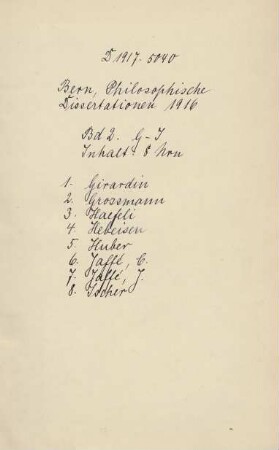 D 1917. 5040
Bern, Philosophische
Dissertationen 1916
Bd 2. G-J
Inhalt: 8 Nrn
1. Girardin
2. Grossmann
3. Haefeli
4. Hebeisen
5. Huber
6. Jaffé, C.
7. Jaffé, J.
8. Ischer